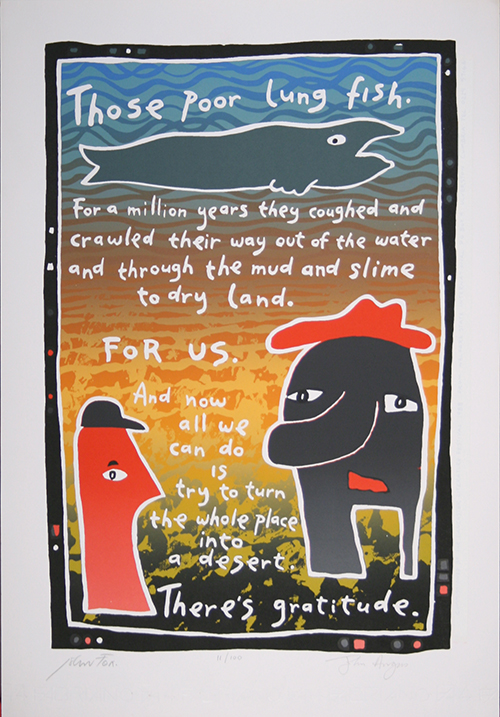 Those poor lung fish.
For a million years they coughed and
crawled their way out of the water
and through the mud and slime
to dry land.
FOR US.
And now
all we
can do
is
try to turn
the whole place
into
a desert.
There's gratitude.